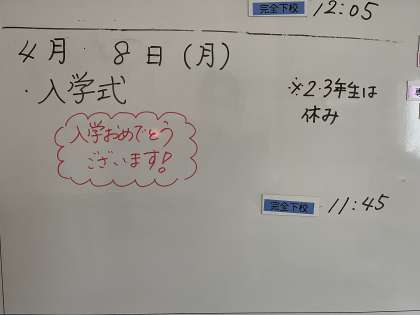 完全下校 12:05
4月 8日(月)
・入学式
※2・3年生は
休み
入学おめでとう
ございます!
完全下校 11:45